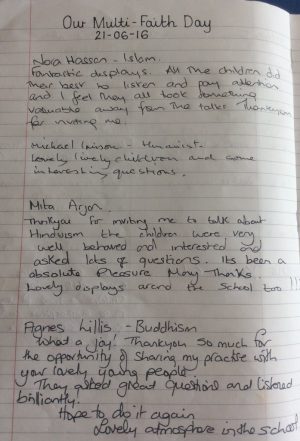 Our Multi-Faith Day
21-06-16
Nora Hassen - Islam.
Fantastic displays. All the children did
their best to listen and pay attention
and I feel they all took something
valuable away from the talks. Thankyou
for inviting me.
Michael - Humanist.
Lovely lively children and some
interesting questions.
Mita Arjon.
Thankyou for inviting me to talk about
Hinduism the children were very
well behaved and interested and
asked lots of questions. Its been a
absolute Pleasure Many Thanks.
Lovely displays around the School too !!!
Agnes Lillis - Buddhism
What a joy! Thankyou so much for
the opportunity of sharing my practise with
your lovely young people.
They asked great questions and listened
brilliantly!
Hope to do it again
Lovely atmosphere in the school